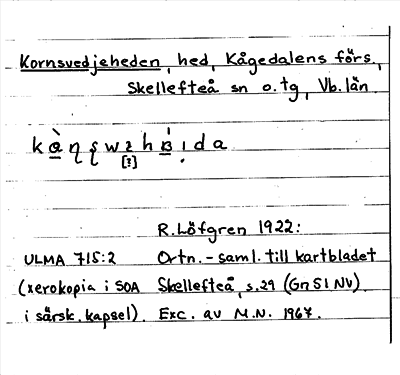 Kornsvedjeheden, hed, Kågedalens förs.,
Skellefteå sn o. tg, Vb. län
[?]
R. Löfgren 1922:
ULMA 715:2 Ortn.-saml. till kartbladet
(xerokopia i SOA Skellefteå, s. 29 (Gn S1 NV)
i särsk. kapsel). Exc. av M.N. 1967.